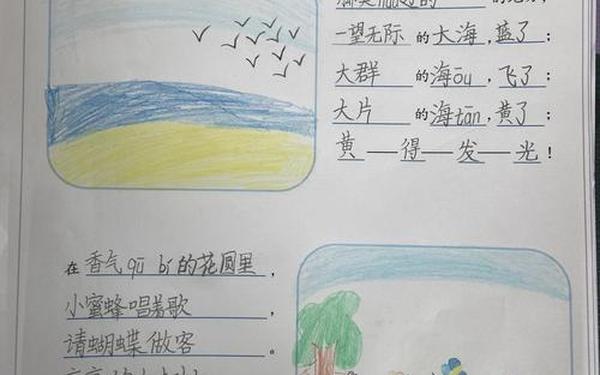 的
一望无际 的大海,蓝了;
大群 的海ōu,飞了;
大片 的海tān,黄了;
黄——得——发——光!
在香气qū bí的花圆里,
小蜜蜂唱着歌,
请蝴蝶做客。